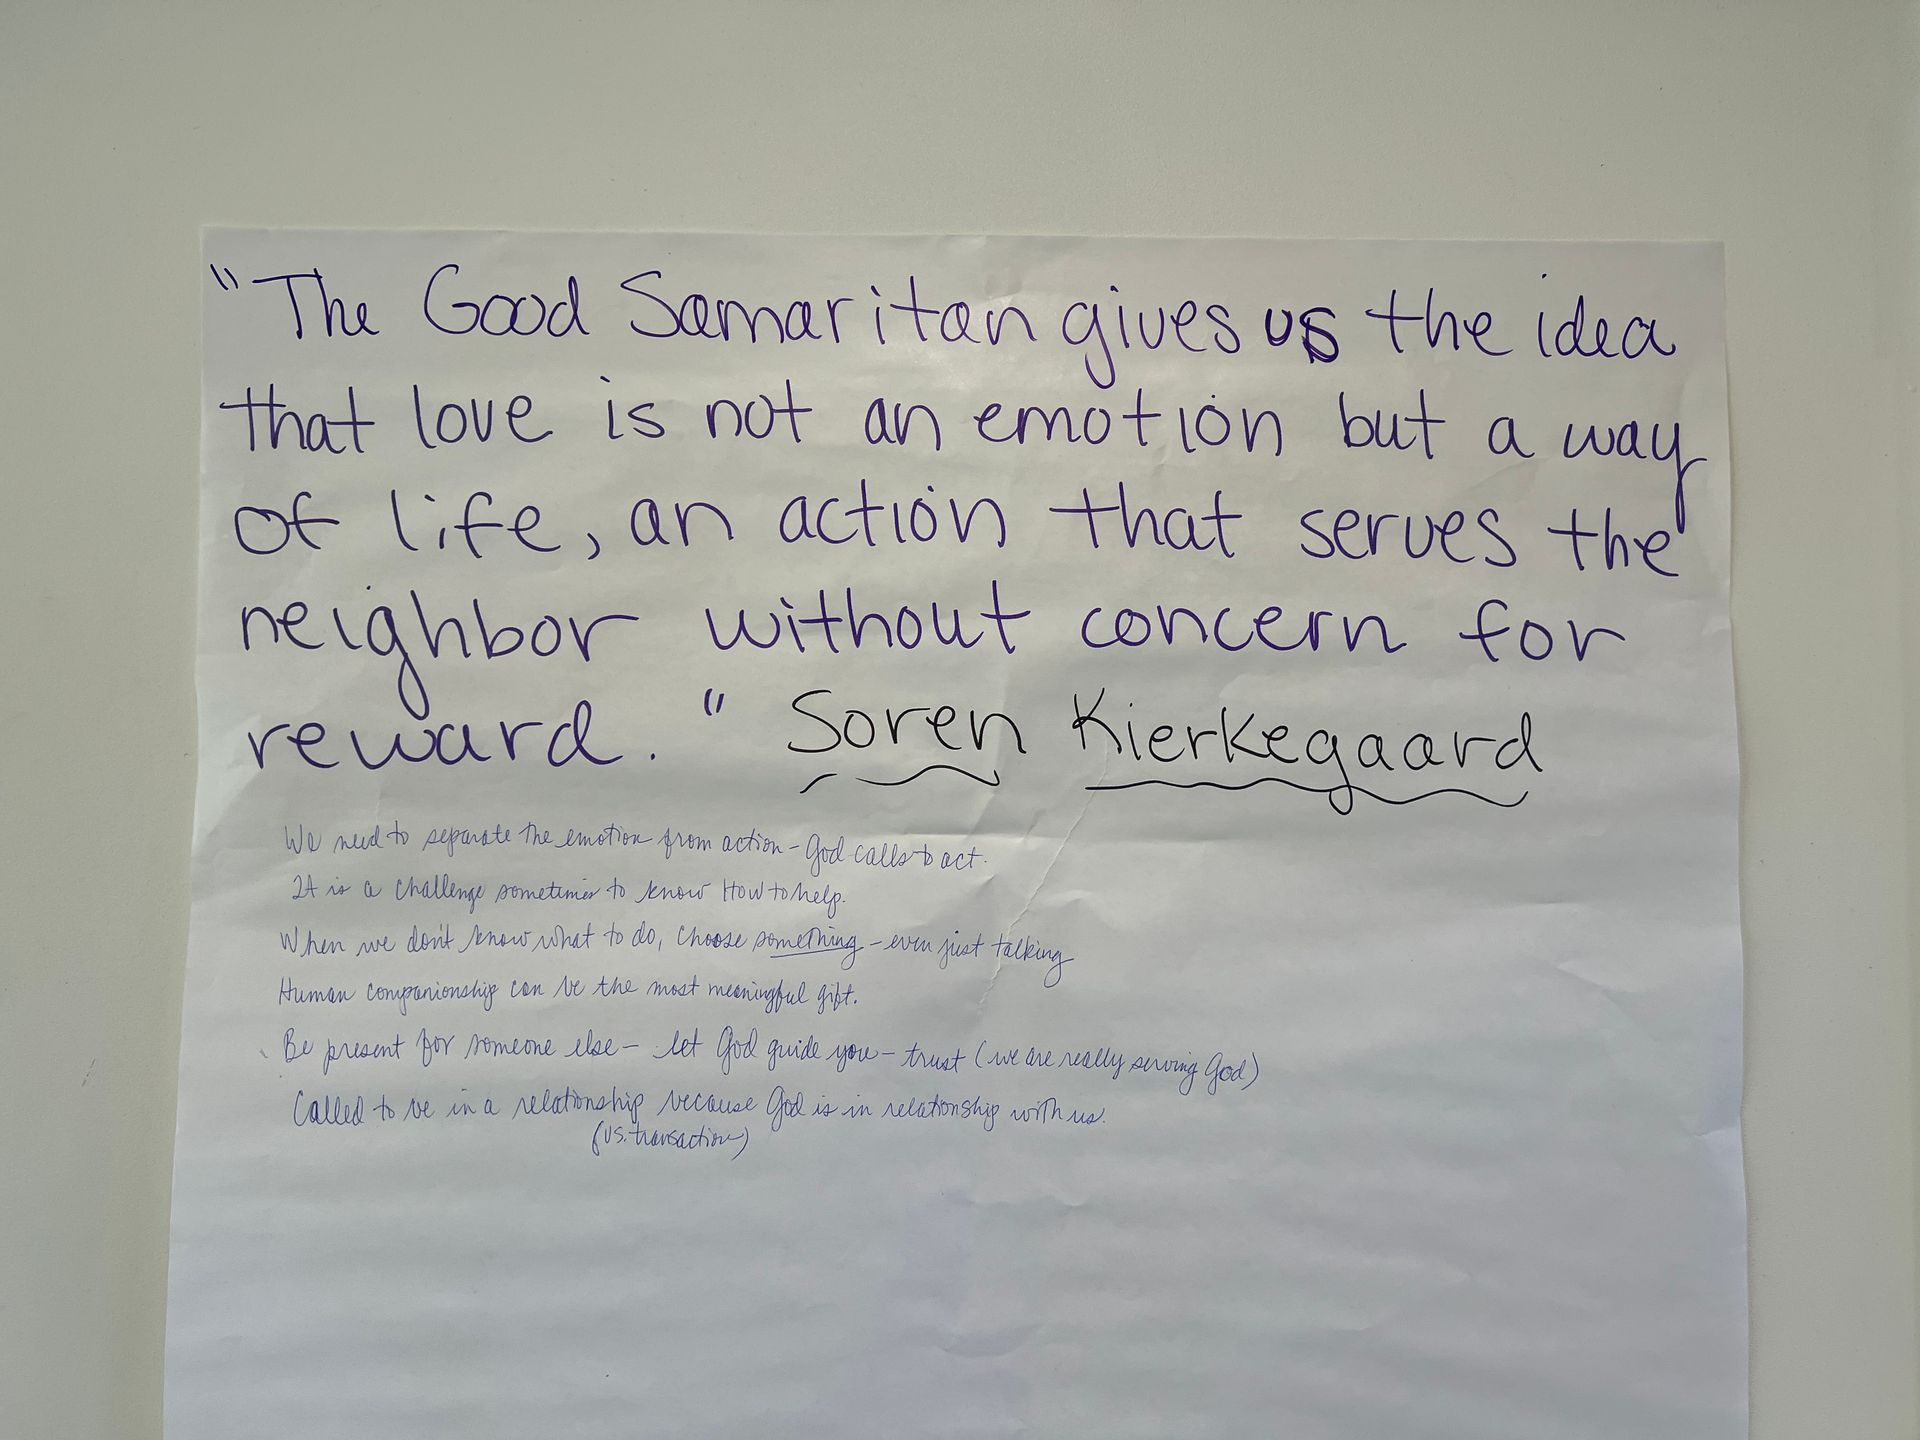 "The Good Samaritan gives us the idea
that love is not an emotion but a way
of life, an action that serves the
neighbor without concern for
reward." Soren Kierkegaard
We need to separate the emotion from action - God calls to act.
It is a challenge sometimes to know How to help.
When we don't know what to do, choose something - even just talking
Human companionship can be the most meaningful gift.
Be present for someone else - let God guide you - trust (we are really serving God)
Called to be in a relationship because God is in relationship with us.
(vs. transaction)